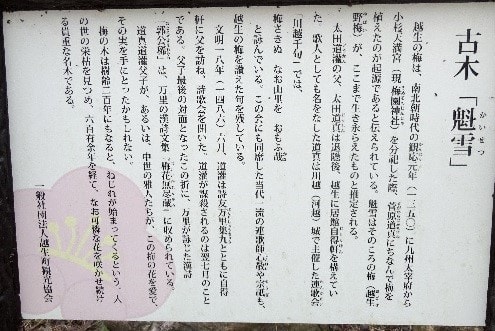 古木「魁雪」
かいせつ
越生の梅は、南北朝時代の観応元年(一三五〇)に九州太宰府から
小杉天満宮(現・梅園神社)を分祀した際、菅原道真にちなんで梅を
植えたのが起源であると伝えられている。魁雪はそのころの梅(越生
野梅)が、ここまで生き永らえたものと推定される。
太田道灌の父、太田道真は退隠後、越生に居館自得軒を構えてい
た。歌人としても名をなした道真は川越(河越)城で主催した連歌会
「川越千句」では、
梅さきぬ なお山里を おもふ哉
と詠んでいる。この会にも同席した当代一流の連歌師心敬や宗祇も、
越生の梅を讃えた句を残している。
文明一八年(一四八六)六月、道灌は詩友万里集九とともに自得
軒に父を訪ね、詩歌会を開いた。道灌が謀殺されるのは翌七月のこと
である。父子最後の対面となったこの折に、万里が詠じた漢詩
「郭公稀」は、万里の漢詩文集「梅花無尽蔵」に収められている。
道真道灌父子が、あるいは、中世の雅人たちが、この梅の花を愛で、
その実を手にとったかもしれない。
梅の木は樹齢二百年にもなると、ねじれが始まってくるという。人
の世の栄枯を見つめ、六百有余年を経て、なお可憐な花を咲かせ続け
る貴重な名木である。
一般社団法人越生町観光協会